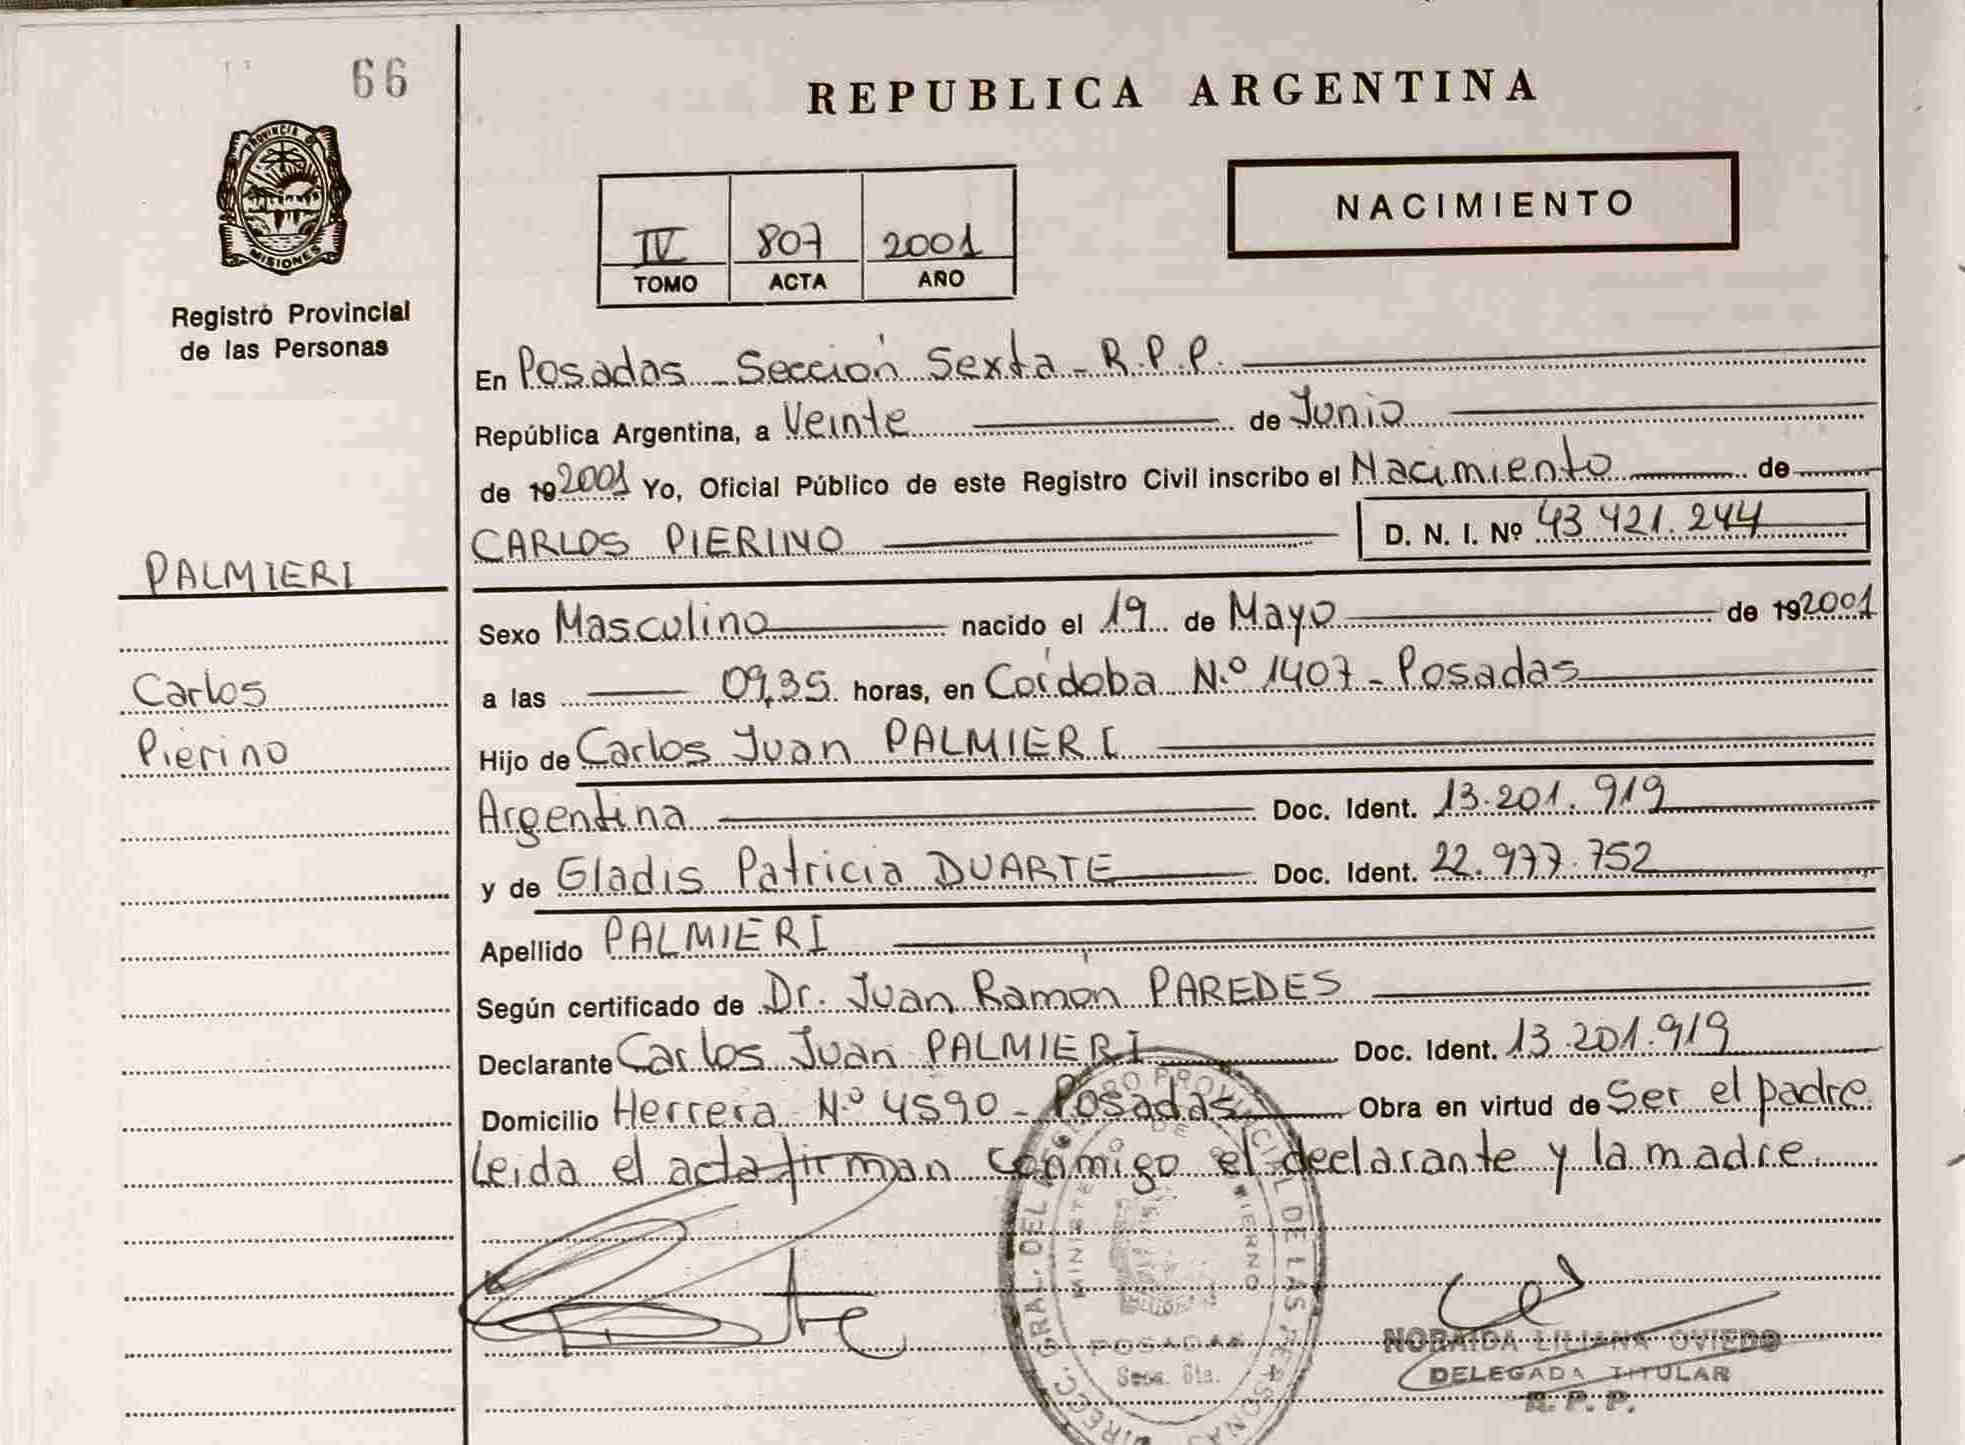 66
PROVINCIA DE
MISIONES
Registro Provincial
de las Personas
REPUBLICA ARGENTINA
IV 807 2001
TOMO ACTA AÑO
NACIMIENTO
En Posadas - Sección Sexta - R.P.P.
República Argentina, a Veinte de Junio
de 19 2001 Yo, Oficial Público de este Registro Civil inscribo el Nacimiento de
CARLOS PIERINO D. N. I. Nº 43.421.244
PALMIERI
Sexo Masculino nacido el 19 de Mayo de 19 2001
Carlos
a las 09,35 horas, en Córdoba N.º 1407 - Posadas
Pierino
Hijo de Carlos Juan PALMIERI
Argentina Doc. Ident. 13.201.919
y de Gladis Patricia DUARTE Doc. Ident. 22.977.752
Apellido PALMIERI
Según certificado de Dr. Juan Ramón PAREDES
Declarante Carlos Juan PALMIERI Doc. Ident. 13.201.919
Domicilio Herrera N.º 4590 - Posadas Obra en virtud de Ser el padre
Leida el acta firman conmigo el declarante y la madre
DIREC. GRAL. DEL REGISTRO PROVINCIAL DE LAS PERSONAS
MINISTERIO DE GOBIERNO
POSADAS
Secc. 6ta.
NORAIDA LILIANA OVIEDO
DELEGADA TITULAR
R. P. P.